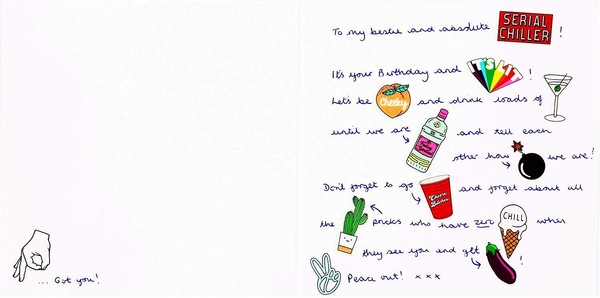 ... Got you!
To my bestie and absolute SERIAL CHILLER !
It's your Birthday and IT'S LIT !
Let's be Cheeky and drink loads of
until we are and tell each
other how we are!
Don't forget to go and forget about all
the pricks who have zero CHILL when
they see you and get !
Peace out! x x x